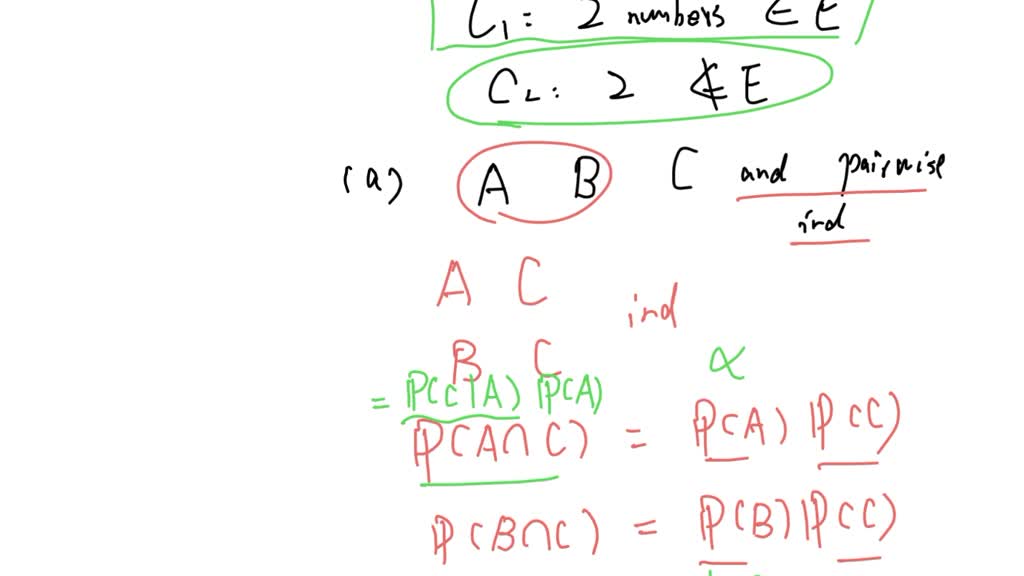 C₁: 2 numbers ∈ E
C₂: 2 ∉ E
(a) A B C and pairwise
ind
A C
ind
B C
α
= P(C|A) P(A)
P(A∩C) = P(A) P(C)
P(B∩C) = P(B) P(C)